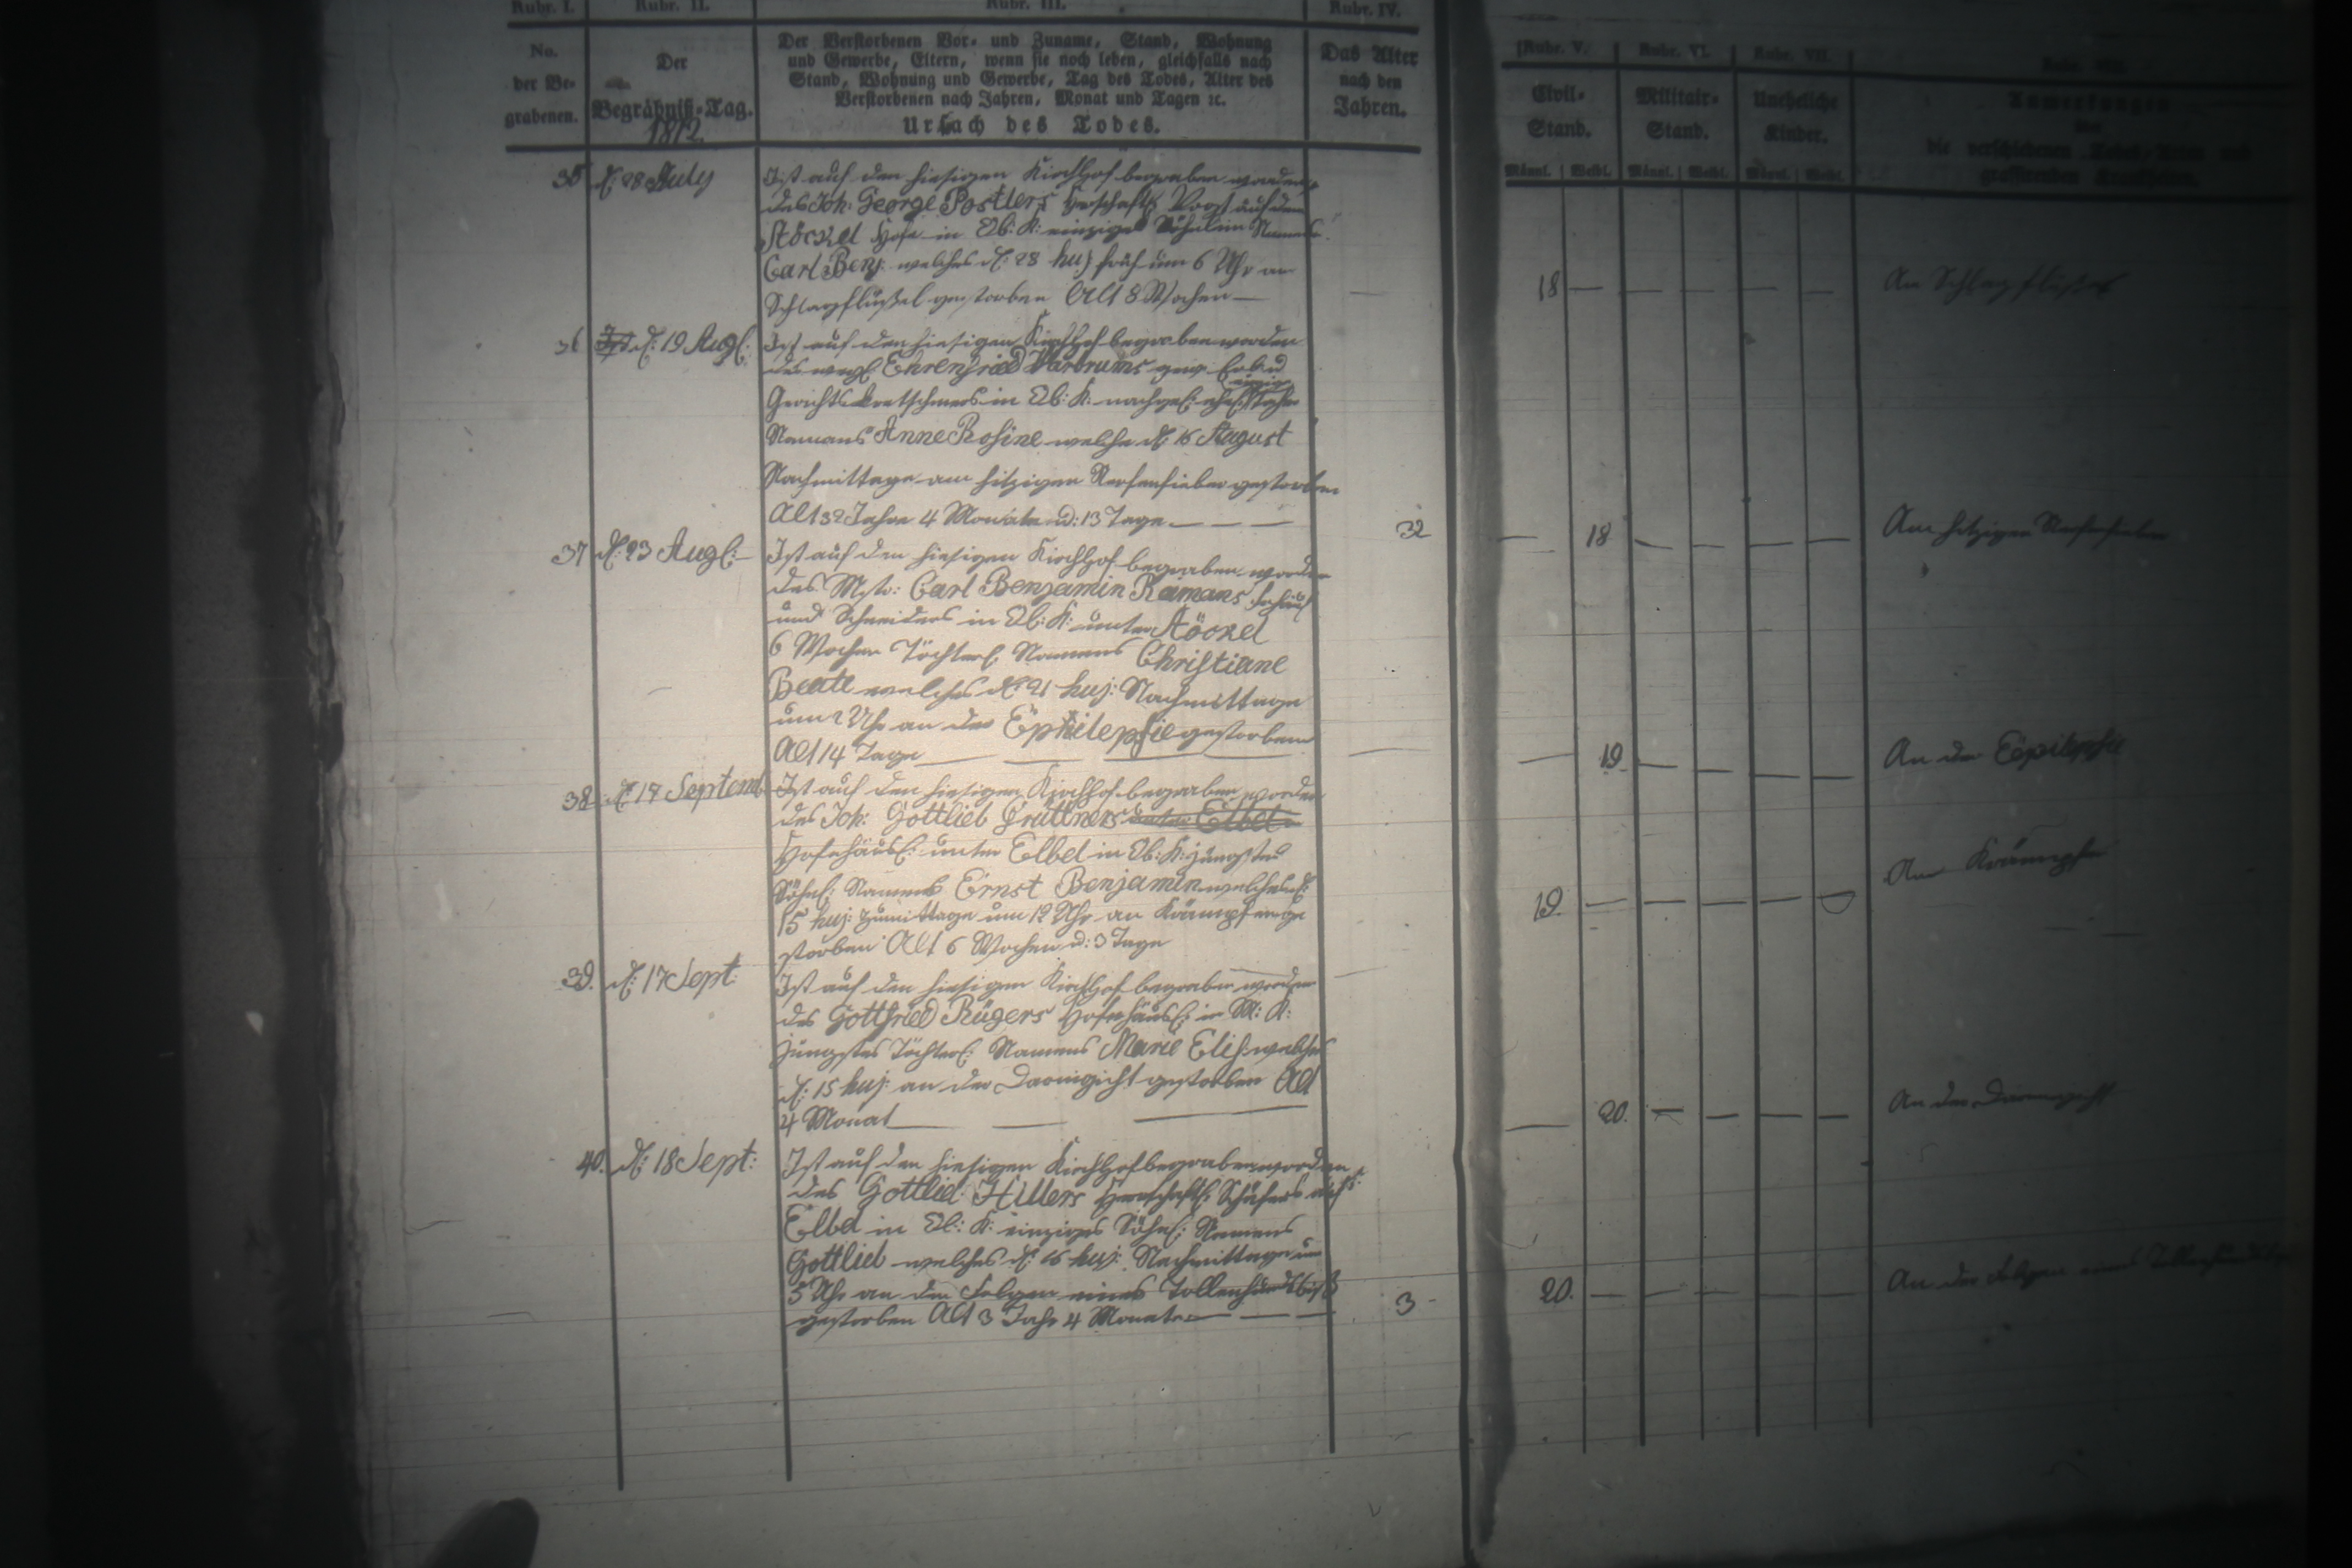 Rubr. I. Rubr. II. Rubr. III. Rubr. IV.
No. der Be-grabenen.
Der Begräbniß-Tag.
1812.
Der Verstorbenen Vor- und Zuname, Stand, Wohnung
und Gewerbe, Eltern, wenn sie noch leben, gleichfalls nach
Stand, Wohnung und Gewerbe, Tag des Todes, Alter des
Verstorbenen nach Jahren, Monat und Tagen ꝛc.
Ursach des Todes.
Das Alter nach den Jahren.
Rubr. V. Rubr. VI. Rubr. VII.
Civil-Stand. Militair-Stand. Uneheliche Kinder. Anmerkungen
die verschiedenen
Männl. Weibl. Männl. Weibl. Männl. Weibl.
35 d. 28 July
Ist auf den hiesigen Kirchhof begraben worden
des Joh: George Postlers Herschaftl. Vogt auf dem
Stöckel Hofe in Ob: K: einziges Söhnlein Namens
Carl Benj: welches d. 28 huj früh um 6 Uhr am
Schlagflußel gestorben Alt 8 Wochen —
18 — — — — — Am Schlagflußel
36 d: 19 Augl:
Ist auf den hiesigen Kirchhof begraben worden
des Ehrenfried gew.
einzige
Gerichtskretschmers in Ob: K. nachgel:
Namens Anne Rosine welche d: 16 August
Nachmittage am hitzigen Nerfenfieber gestorben
Alt 32 Jahre 4 Monate u: 13 Tage — — —
32 — 18 — — — — Am hitzigen Nerfenfieber
37 d: 23 Augl: —
Ist auf den hiesigen Kirchhof begraben worden
des Mstr: Carl Benjamin Raimans
und Schneiders in Ob: K: unter Stöckel
6 Wochen Töchterl: Namens Christiane
Beate welches d: 21 huj: Nachmittage
um 2 Uhr an der Ephilepsie gestorben
Alt 14 Tage — — —
— 19 — — — — An der Epilepsie
38 d: 17 Septemb
Ist auf den hiesigen Kirchhof begraben worden
des Joh: Gottlieb Grüttners unter Elbel
Hofehäusl: unter Elbel in Ob: K: jüngstes
Söhnl: Namens Ernst Benjamin welches d:
15 huj: zumittage um 12 Uhr an Krämpfen ge
storben Alt 6 Wochen u: 3 Tage
19. — — — — Am Krämpfen
39. d: 17 Sept:
Ist auf den hiesigen Kirchhof begraben worden
des Gottfried Rügers Hofehäusl: in M: K:
jüngstes Töchterl: Namens Marie Elis: welches
d: 15 huj: an der Darmgicht gestorben Alt
4 Monat — — —
— 20. — — — — An der Darmgicht
40. d: 18 Sept:
Ist auf den hiesigen Kirchhof begraben worden
des Gottlieb Hillers Herrschaftl: Schäfers
Elbel in Ob: K: einziges Söhnl: Namens
Gottlieb welches d: 16 huj: Nachmittage um
5 Uhr an den Folgen eines Tollenhundsbiß
gestorben Alt 3 Jahr 4 Monate — — —
3 20. — — — — — An den Folgen eines